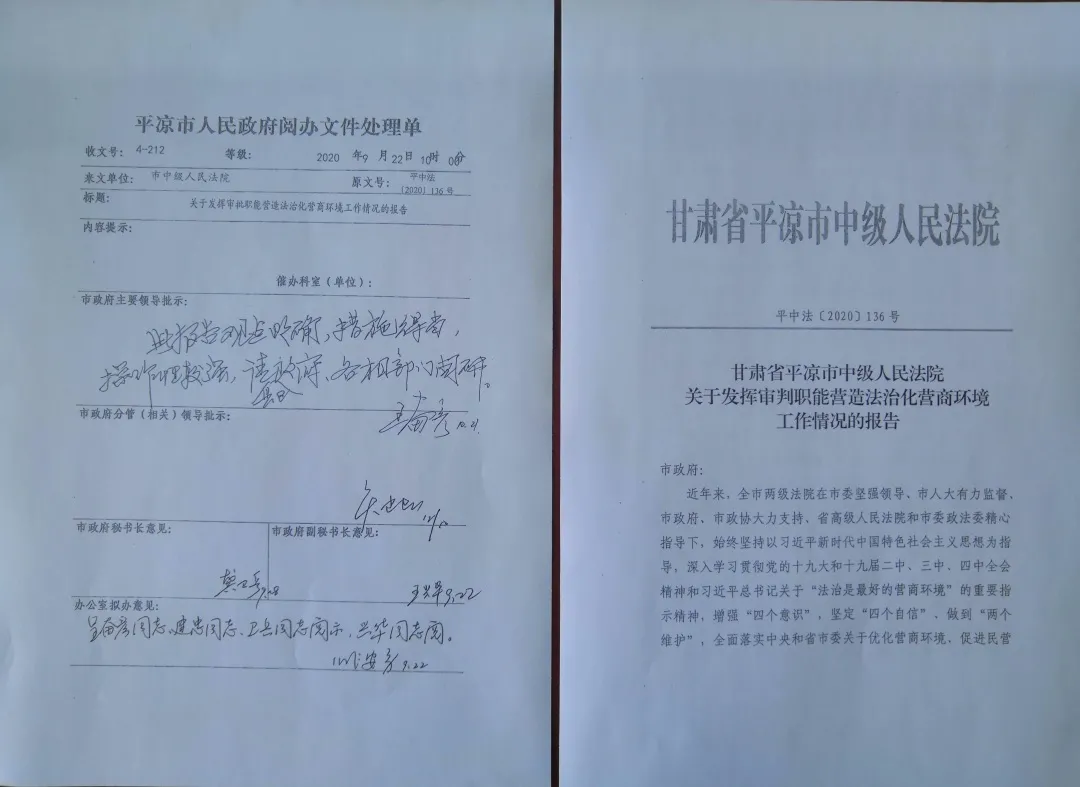 平凉市人民政府阅办文件处理单
收文号: 4-212 等级: 2020 年9 月 22日 10时 00分
来文单位: 市中级人民法院 原文号: 平中法〔2020〕136号
标题: 关于发挥审批职能营造法治化营商环境工作情况的报告
内容提示:
催办科室(单位):
市政府主要领导批示:
此报告观点明确,措施得当,
操作性较强,请政府、各相部门阅研。
市政府分管(相关)领导批示:
王奋彦
市政府秘书长意见: 市政府副秘书长意见:
9.22
办公室拟办意见:
呈奋彦同志、建忠同志、卫岳同志阅示,兴华同志阅。
9.22
甘肃省平凉市中级人民法院
平中法〔2020〕136号
甘肃省平凉市中级人民法院
关于发挥审判职能营造法治化营商环境
工作情况的报告
市政府:
近年来,全市两级法院在市委坚强领导、市人大有力监督、
市政府、市政协大力支持、省高级人民法院和市委政法委精心
指导下,始终坚持以习近平新时代中国特色社会主义思想为指
导,深入学习贯彻党的十九大和十九届二中、三中、四中全会
精神和习近平总书记关于“法治是最好的营商环境”的重要指
示精神,增强“四个意识”,坚定“四个自信”、做到“两个
维护”,全面落实中央和省市委关于优化营商环境、促进民营